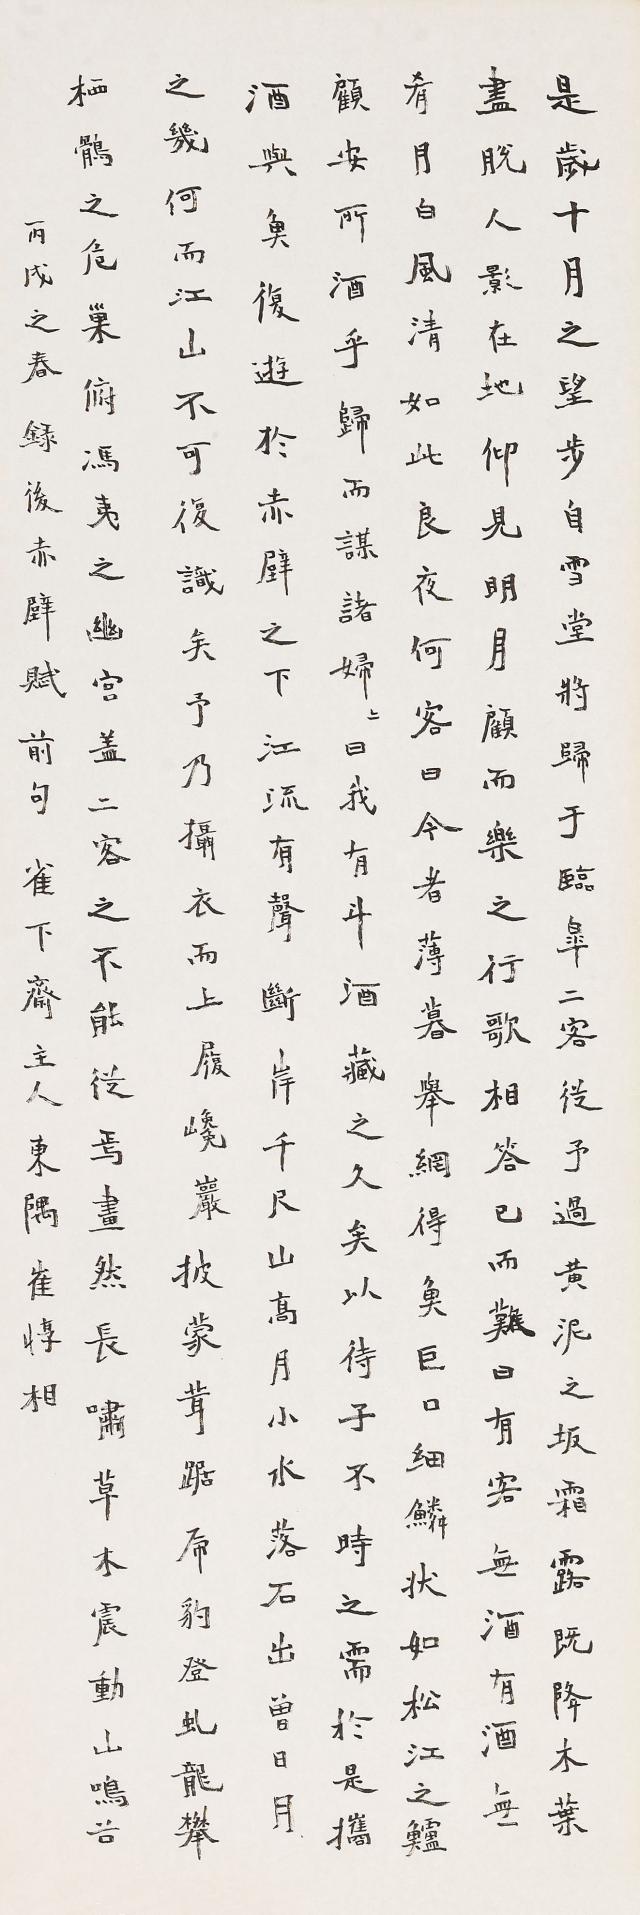 是歲十月之望步自雪堂將歸于臨皐二客從予過黃泥之坂霜露既降木葉
盡脫人影在地仰見明月顧而樂之行歌相答已而難曰有客無酒有酒無
肴月白風清如此良夜何客曰今者薄暮舉網得魚巨口細鱗狀如松江之鱸
顧安所酒乎歸而謀諸婦〻曰我有斗酒藏之久矣以待子不時之需於是攜
酒與魚復遊於赤壁之下江流有聲斷岸千尺山高月小水落石出曾日月
之幾何而江山不可復識矣予乃攝衣而上履巉巖披蒙茸踞虎豹登虬龍攀
栖鶻之危巢俯馮夷之幽宮盖二客之不能從焉畫然長嘯草木震動山鳴谷
丙戌之春 錄後赤壁賦前句 雀下齋主人東隅崔惇相